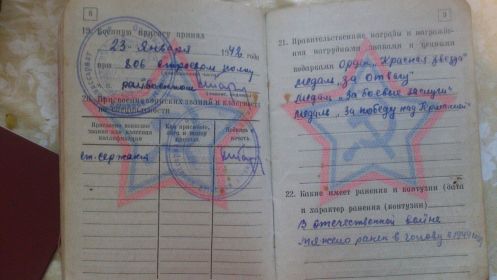 8
19. Военную присягу принял
23 Января 1942 года
при 806 стрелковом полку
райвоенком
20. Присвоение воинских званий и классности
по специальности
Присвоено воинское
звание или классная
квалификация
Кем присвоено,
дата и номер
приказа
Подпись и
печать
ст. сержант
9
21. Правительственные награды и награждение
нагрудными знаками и ценными
подарками Орден "Красная звезда"
медаль "За отвагу"
медаль "За боевые заслуги"
медаль "За победу над Германией"
22. Какие имеет ранения и контузии (дата
и характер ранения (контузии)
В отечественной войне
тяжело ранен в голову в 1944 году